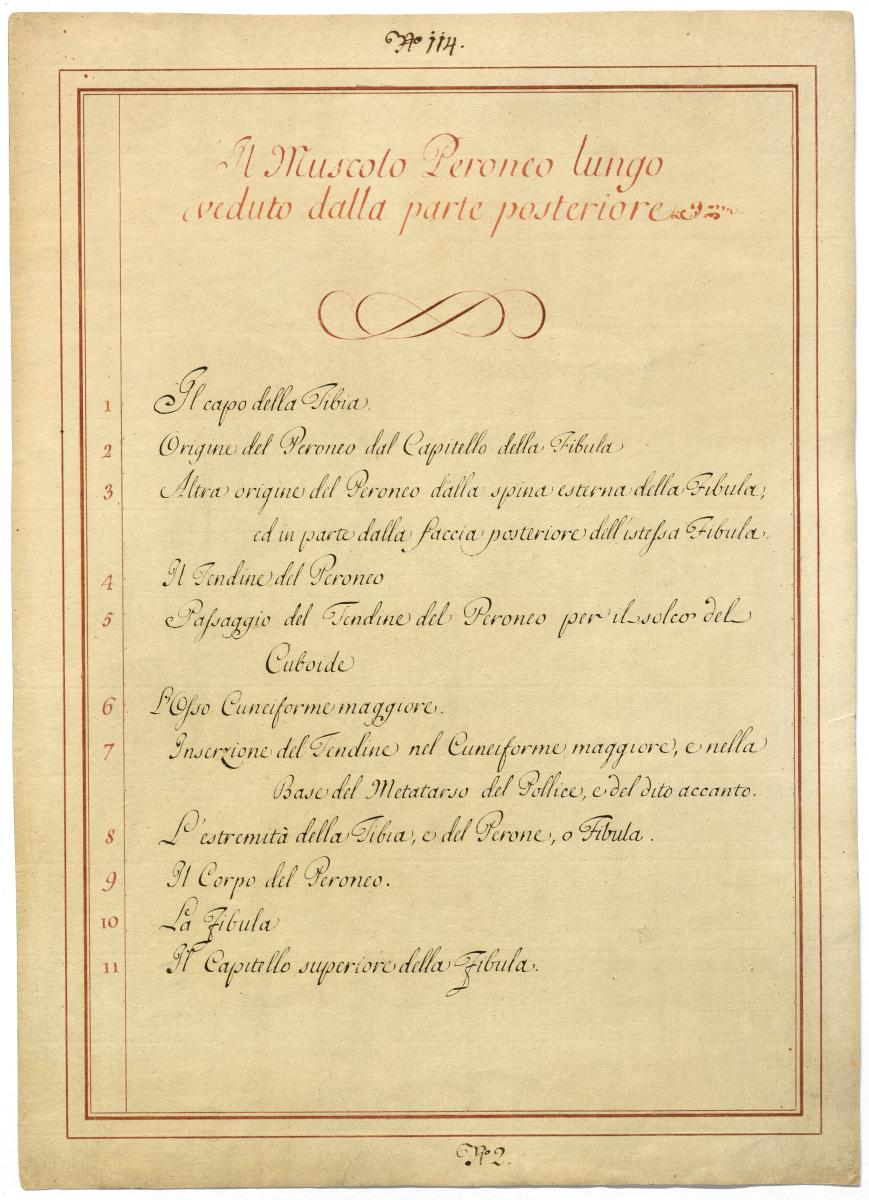 No 114.
Il Muscolo Peroneo lungo
veduto dalla parte posteriore
1 Il capo della Tibia.
2 Origine del Peroneo dal Capitello della Fibula
3 Altra origine del Peroneo dalla spina esterna della Fibula,
ed in parte dalla faccia posteriore dell'istessa Fibula.
4 Il Tendine del Peroneo
5 Passaggio del Tendine del Peroneo per il solco del
Cuboide
6 L'Osso Cuneiforme maggiore.
7 Inserzione del Tendine nel Cuneiforme maggiore, e nella
Base del Metatarso del Pollice, e del dito accanto.
8 L'estremità della Tibia, e del Perone, o Fibula.
9 Il Corpo del Peroneo.
10 La Fibula
11 Il Capitello superiore della Fibula.
No 2.